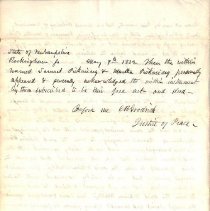 State of Newhampshire
Rockingham ss May 9th 1832. Then the within
named Samuel Pickering & Martha Pickering personally
appeared & severally acknowledged the within instrument
by them subscribed to be their free act and deed—
Before me
Justice of Peace